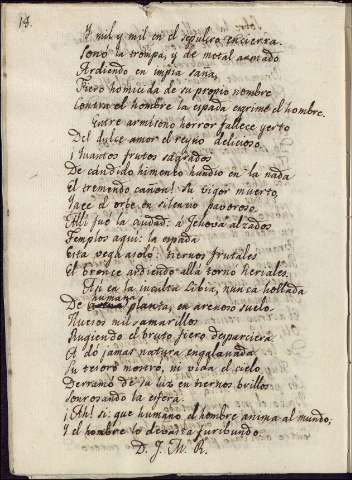 14.
Y mil y mil en el sepulcro encierra.
Sonó la trompa, y de metal armado
Ardiendo en impia saña,
Fiero homicida de su propio nombre
Contra el hombre la espada esgrime el hombre.
Entre armisono horror fallece yerto
Del dulce amor el reyno delicioso.
¡Quantos frutos sagrados
De candido himeneo hundió en la nada
El tremendo cañon! Su vigor muerto,
Yace el orbe en silencio pavoroso.
Alli fue la ciudad: a Jehová alzados
Templos aqui: la espada
Esta vega asoló: tiernos frutales
El bronce ardiendo allá tornó heriales.
Asi en la inculta Libia, nunca hollada
humana
De planta, en arenoso suelo
Huesos mil amarillos
Rugiendo el bruto fiero desparciera
A dó jamas natura engalanada
Su tesoro mostró, ni vida el cielo
Derramó de su luz en tiernos brillos
Sonrosando la esfera.
¡Ah! si: que humano el hombre anima al mundo;
Y el hombre lo devasta furibundo.
D. J. M. R.